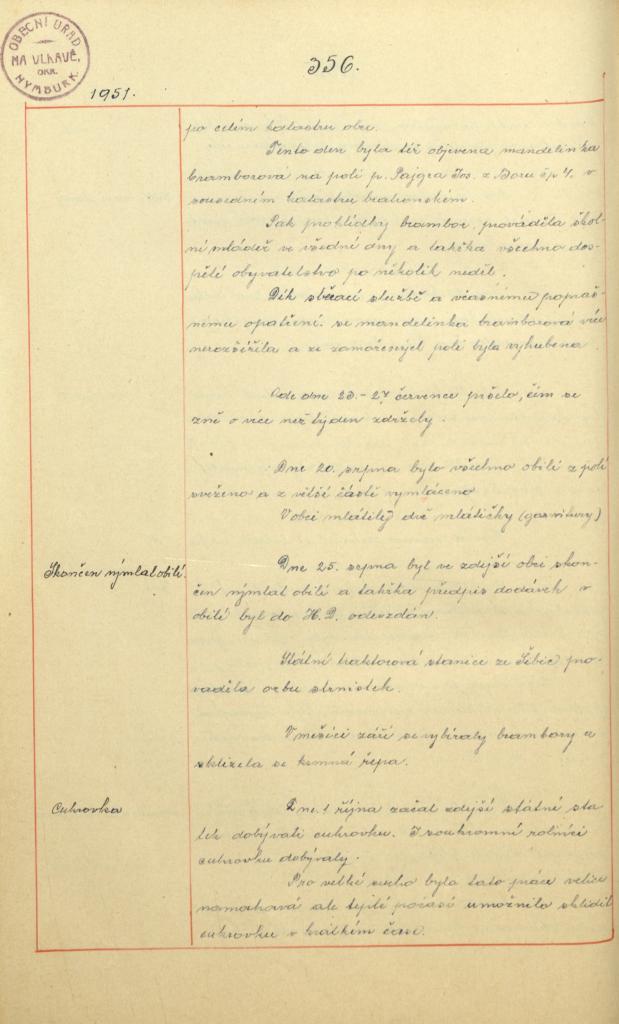 OBECNÍ ÚŘAD
NA VLKAVĚ,
OKR.
NYMBURK.
356.
1951.
po celém katastru obce.
Tento den byla též objevena mandelinka
bramborová na poli p. Pajgra Jos. z Boru čp 4. v
sousedním katastru
Pak prohlídky brambor prováděla škol-
ní mládež ve všední dny a takřka všechno dos-
pělé obyvatelstvo po několik neděl.
Dík sběrací službě a včasnému popraš-
nému opatření se mandelinka bramborová více
nerozšířila a ze zamořených polí byla vyhubena.
Ode dne 23.-27 července pršelo, čím se
žně o více než týden zdržely.
Dne 20. srpna bylo všechno obilí z polí
svezeno a z větší části vymláceno.
V obci mlátily dvě mlátičky (garnitury)
Skončen výmlat obilí.
Dne 25. srpna byl ve zdejší obci skon-
čen výmlat obilí a takřka předpis dodávek v
obilí byl do H.D. odevzdán.
Státní traktorová stanice ze Všibic pro-
váděla orbu strnistek.
V měsíci září se vybíraly brambory a
sklízela se krmná řepa.
Cukrovka
Dne 1 října začal zdejší státní sta-
tek dobývati cukrovku. I soukromní rolníci
cukrovku dobývaly.
Pro velké sucho byla tato práce velice
namahavá ale teplé počasí umožnilo sklidit
cukrovku v krátkém čase.